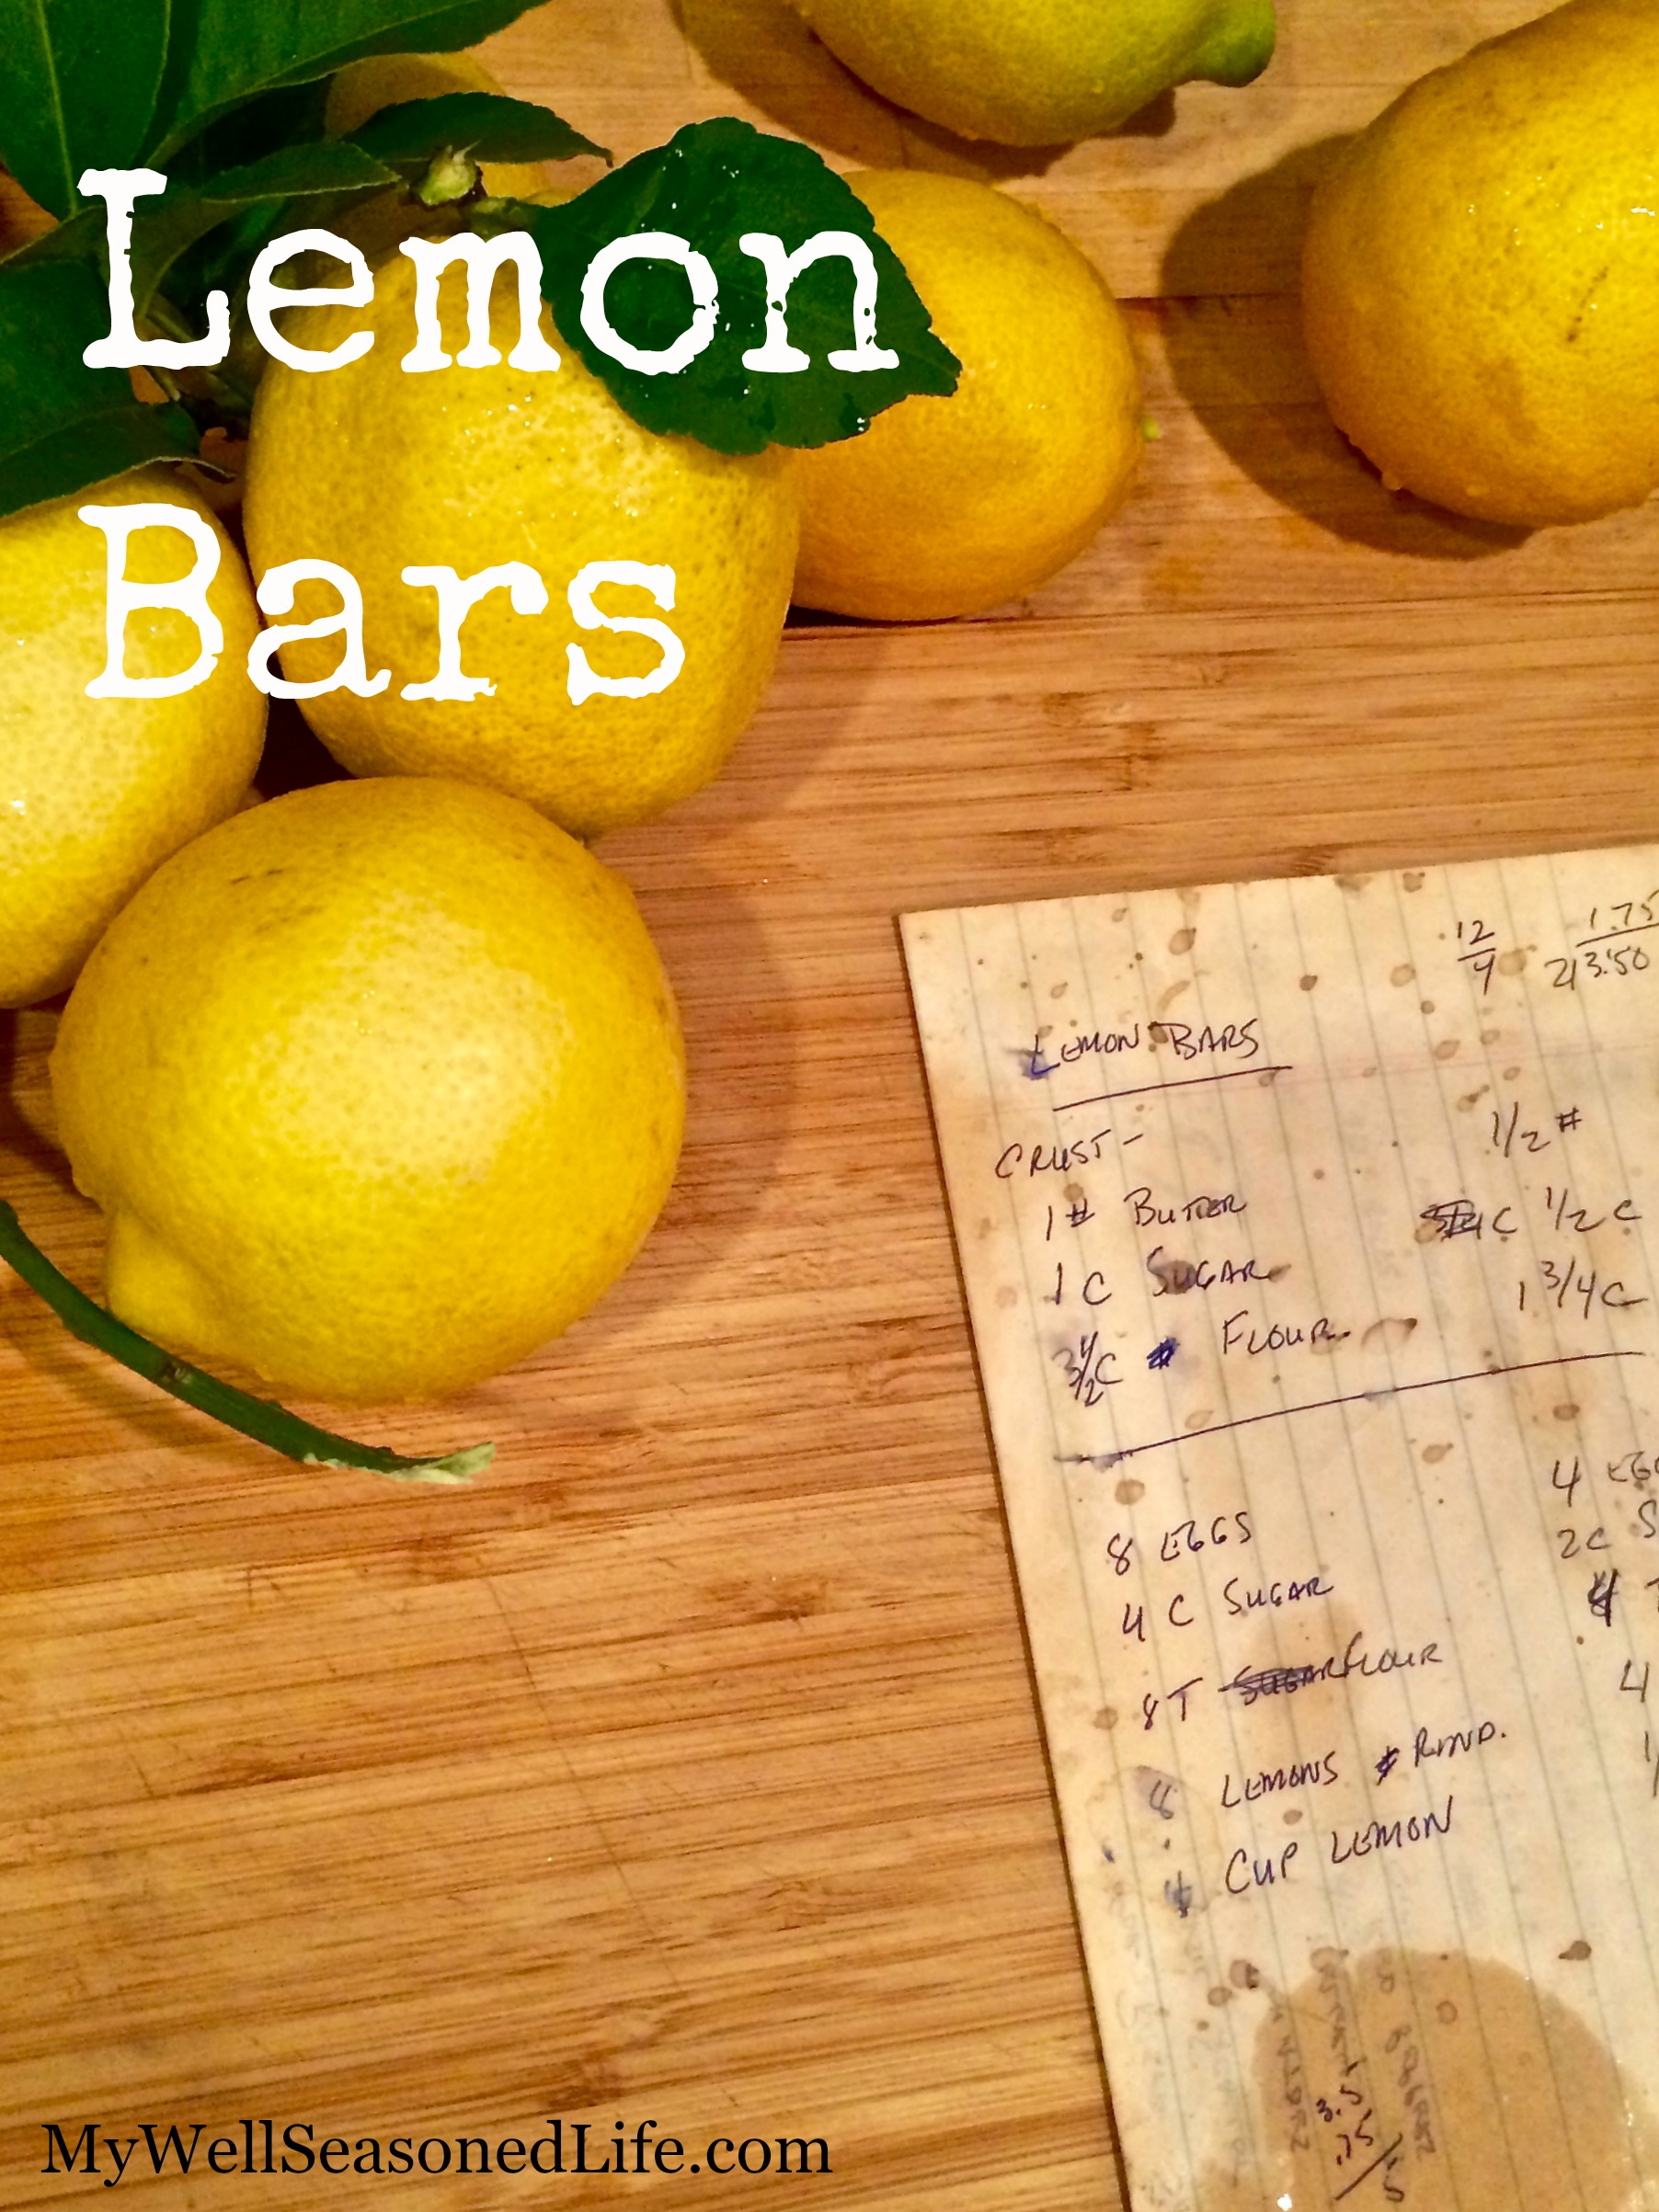 Lemon
Bars
12
4
1.75
2 3.50
LEMON BARS
CRUST- 1/2 #
1 # BUTTER C 1/2 C
1 C SUGAR 1 3/4 C
3 1/2 C # FLOUR
8 EGGS 4
4 C SUGAR 2C
8 T FLOUR 4
8 LEMONS RIND. 4
CUP LEMON
3.5
.75
MyWellSeasonedLife.com